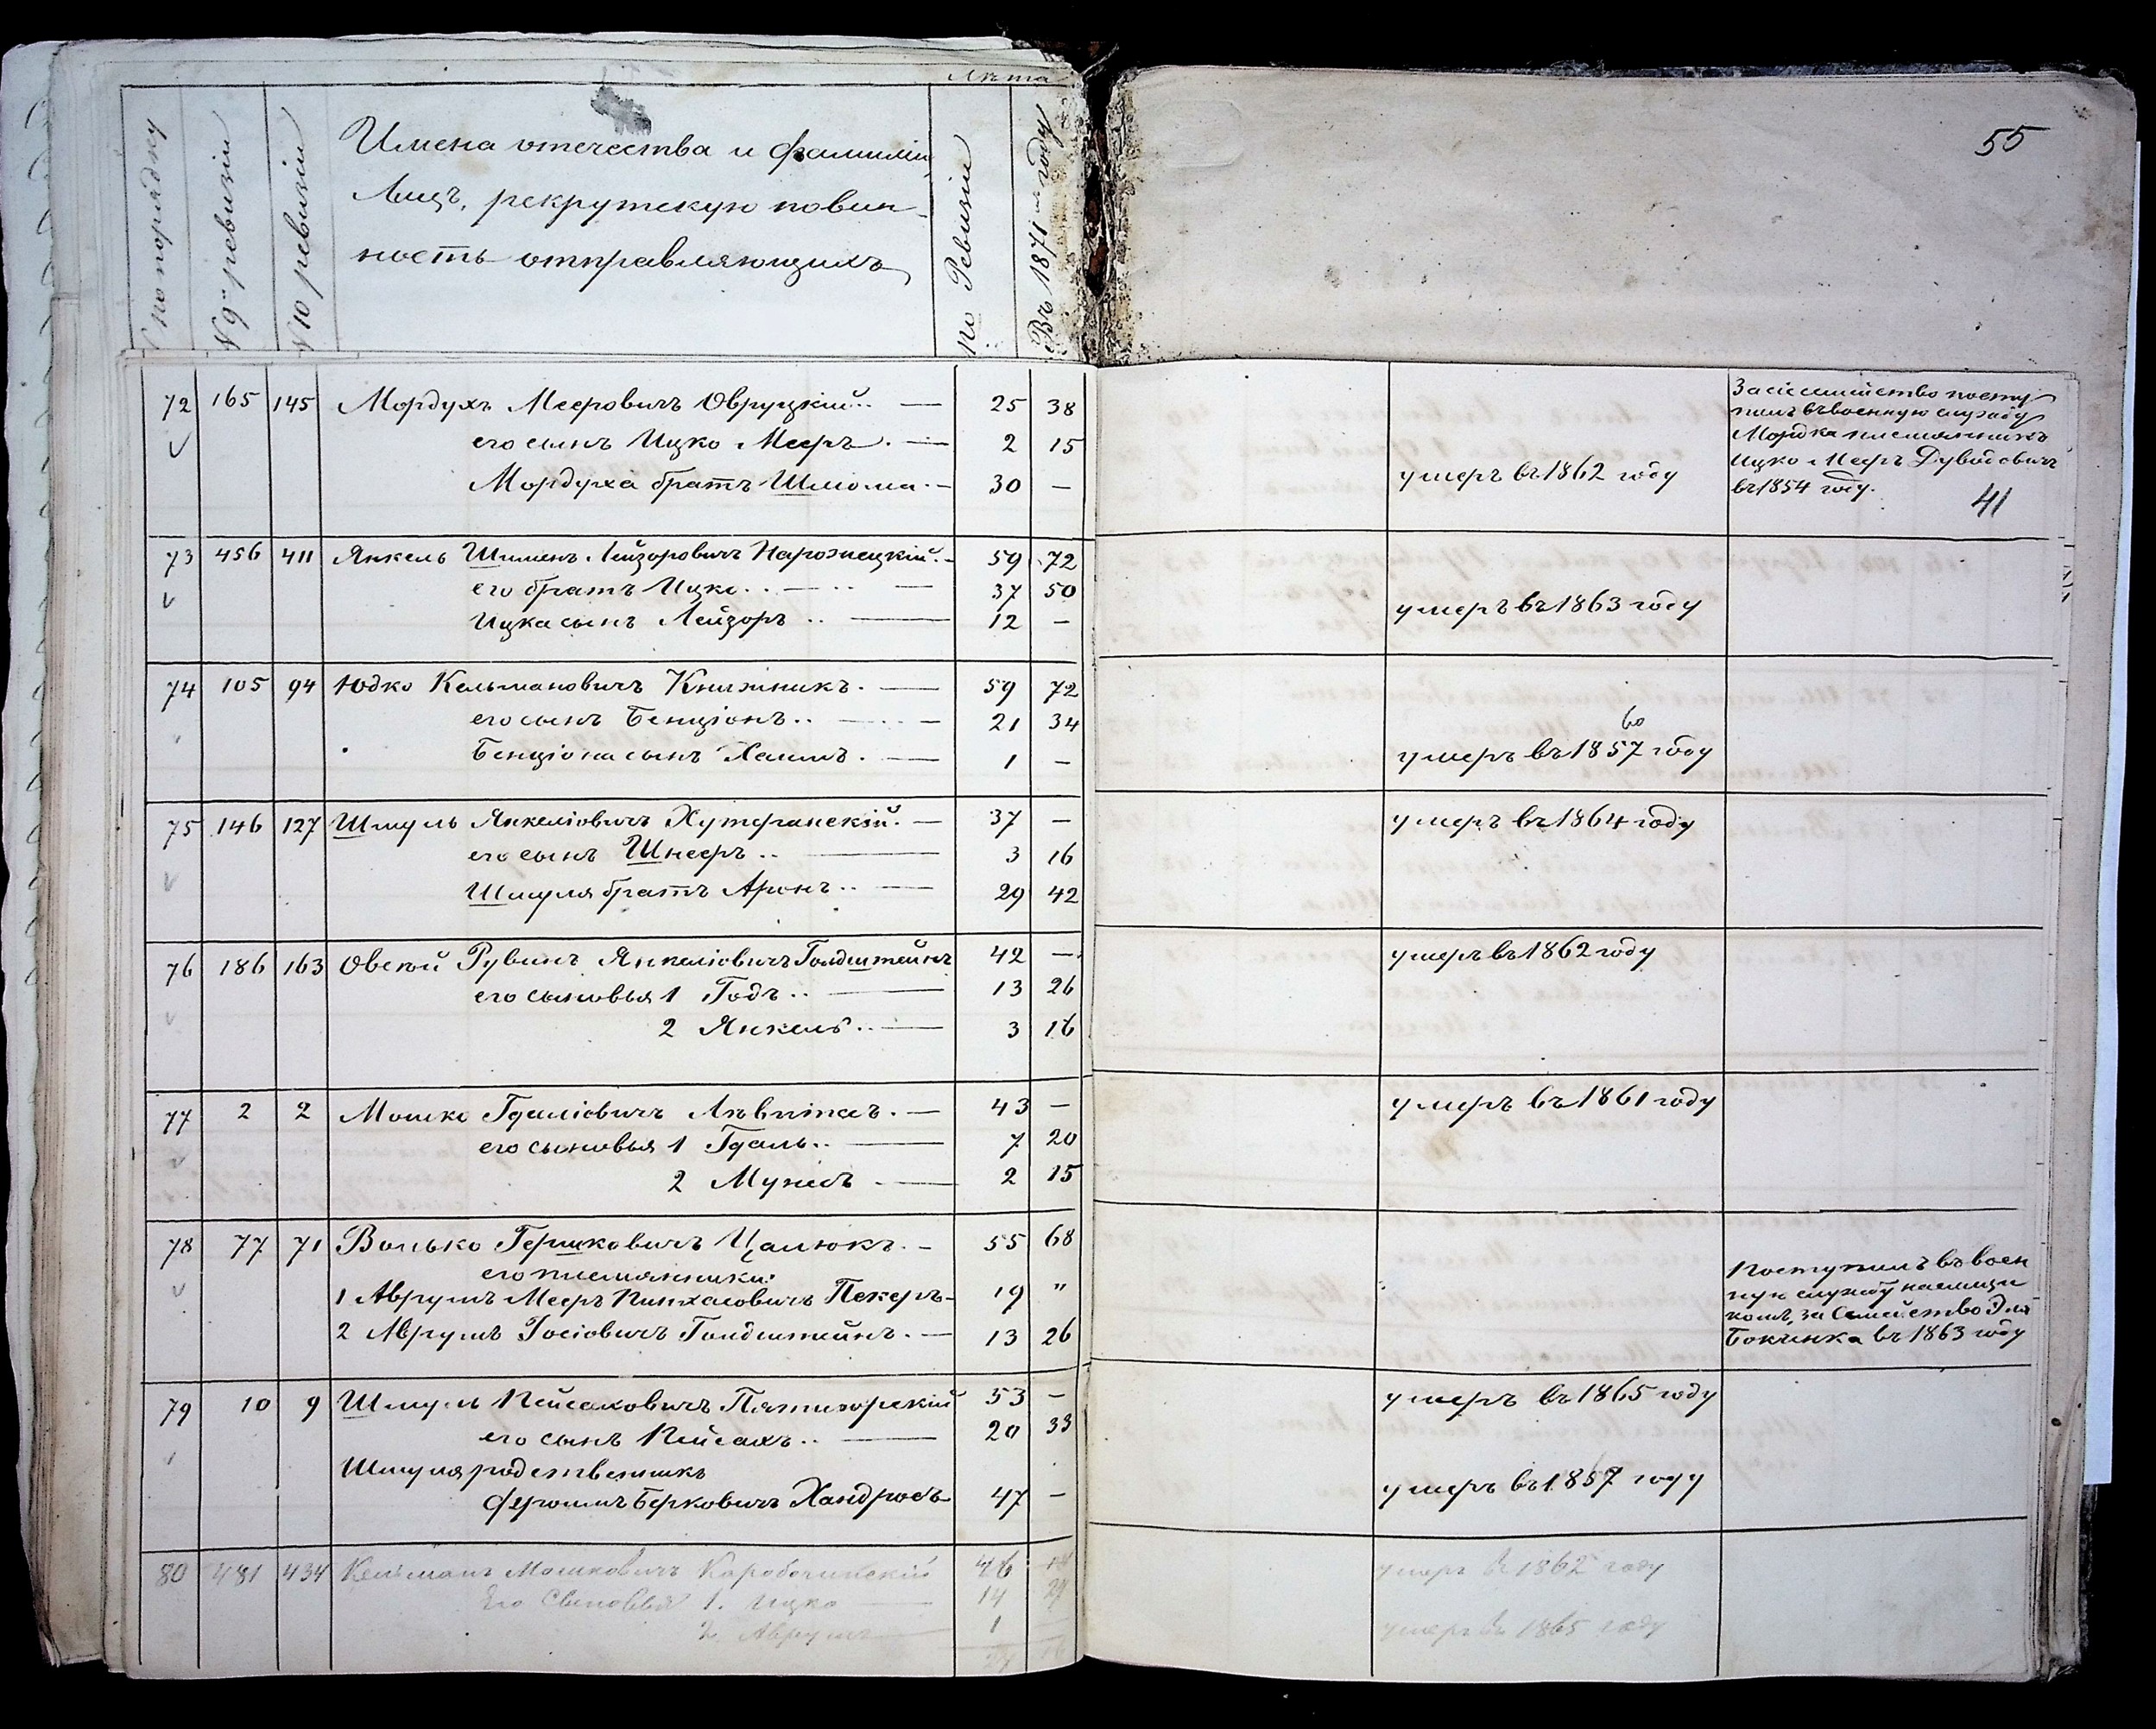 Лѣта
№ по порядку
№ 9й ревизіи
№ 10 ревизіи
Имена отечества и фамиліи
Лицъ, рекрутскую повин-
ность отправляющихъ
по Ревизіи
Въ 1871 году
55
72 165 145 Мордухъ Мееровичъ Овруцкій 25 38
его сынъ Ицко Мееръ 2 15
Мордуха братъ Шлиома 30 — умеръ въ 1862 году
За сіе семейство посту
пилъ въ военную службу
Мордка племянникъ
Ицко Мееръ Дувидовичъ
въ 1854 году.
41
73 456 411 Янкель Шлиенъ Лейзоровичъ Нарожецкій 59 72
его братъ Ицко 37 50
Ицка сынъ Лейзоръ 12 — умеръ въ 1863 году
74 105 94 Юдко Кельмановичъ Книжникъ 59 72
его сынъ Бенціонъ 21 34
60
Бенціона сынъ Хаимъ 1 — умеръ въ 1857 году
75 146 127 Шмуль Янкеліовичъ Хутеранскій 37 — умеръ въ 1864 году
его сынъ Шнееръ 3 16
Шмуля братъ Аронъ 29 42
76 186 163 Овсей Рувинъ Янкеліовичъ Голдштейнъ 42 — умеръ въ 1862 году
его сыновья 1 Годъ 13 26
2 Янкель 3 16
77 2 2 Мошко Гдаліовичъ 43 — умеръ въ 1861 году
его сыновья 1 Гдаль 7 20
2 15
78 77 71 Волько Гершковичъ Цалюкъ 55 68
его племянники:
1 Аврумъ Мееръ Пинхасовичъ Пекеръ 19 "
2 Аврумъ Іосіовичъ Голдштейнъ 13 26
Поступилъ въ воен
ную службу наемщи
комъ, за Семейство Эля
Бокчинка въ 1863 году
79 10 9 Шмуль Пейсаховичъ Пятигорскій 53 — умеръ въ 1865 году
его сынъ Пейсахъ 20 33
Шмуля родственникъ
Берковичъ Хандросъ 47 — умеръ въ 1857 году
80 481 434 Кельманъ Мошковичъ Коробочинскій 46 умеръ въ 1862 году
Его Сыновья 1. Ицко 14
2. Аврумъ 1 — умеръ въ 1865 году